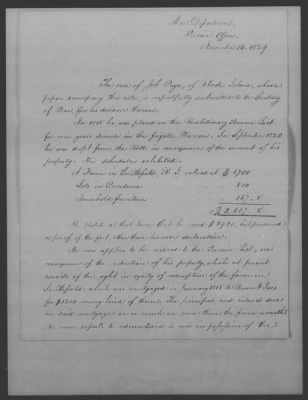 War Department,
Pension Office,
November 14. 1829
The case of Job Page, of Rhode Island, whose
papers accompany this note, is respectfully submitted to the Secretary
of War, for his decision thereon.
In 1818 he was placed on the Revolutionary Pension List
for one year's service in the frigate, Warren. In September 1820
he was dropt from the Rolls in consequence of the amount of his
property. His schedule exhibited.
A Farm in Smithfield, R. I. valued at $ 1700
Lots in Providence 800
Household furniture 167.8
$ 2,667.8
He stated at that time that he owed $ 2920, but produced
no proof of the fact, other than his own declaration.
He now applies to be restored to the Pension List, in
consequence of the reduction of his property, which at present
consists of the right in equity of redemption of the farm in
Smithfield, which was mortgaged in January 1818 to
for $1200 money loaned of them. The principal and interest due
on said mortgage are as much or more than the farm is worth
the